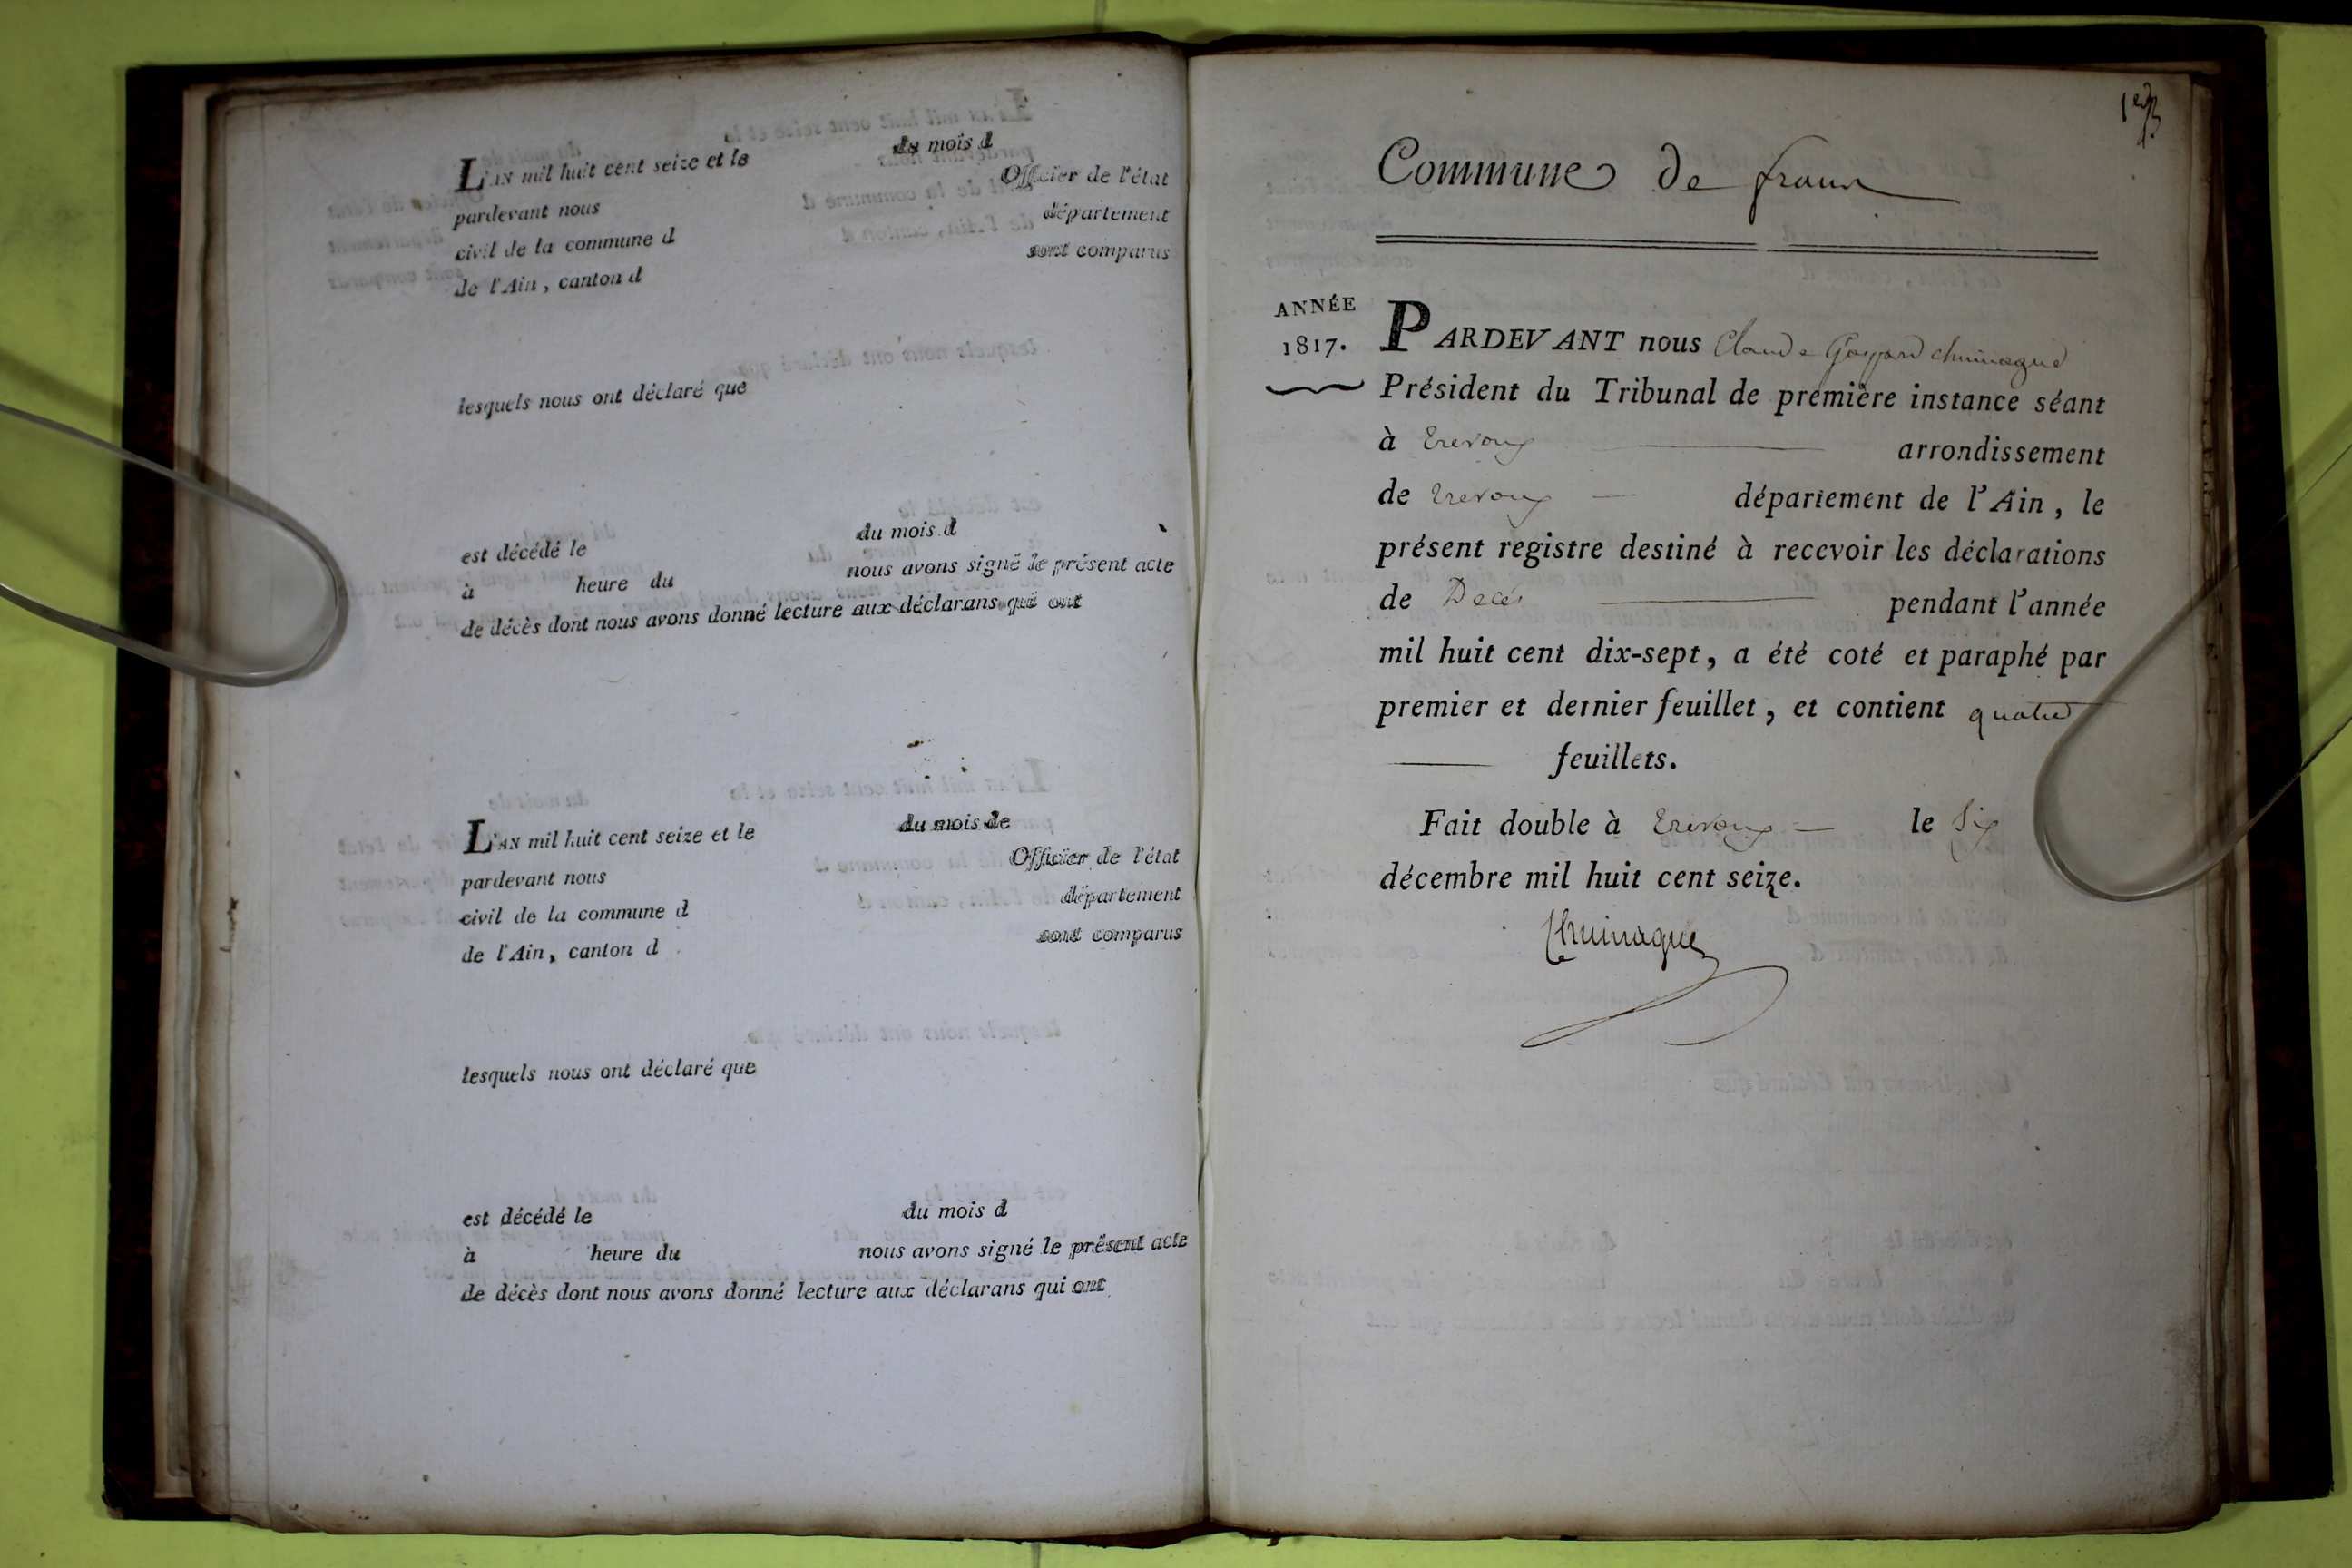 L'AN mil huit cent seize et le du mois d
pardevant nous Officier de l'état
civil de la commune d département
de l'Ain, canton d sont comparus
lesquels nous ont déclaré que
est décédé le du mois d
à heure du nous avons signé le présent acte
de décès dont nous avons donné lecture aux déclarans qui ont
L'AN mil huit cent seize et le du mois de
pardevant nous Officier de l'état
civil de la commune d département
de l'Ain, canton d sont comparus
lesquels nous ont déclaré que
est décédé le du mois d
à heure du nous avons signé le présent acte
de décès dont nous avons donné lecture aux déclarans qui ont
1er
Commune de frans
ANNÉE
1817.
PARDEVANT nous Claude Gaspard
Président du Tribunal de première instance séant
à Trevoux arrondissement
de Trevoux département de l'Ain, le
présent registre destiné à recevoir les déclarations
de Décès pendant l'année
mil huit cent dix-sept, a été coté et paraphé par
premier et dernier feuillet, et contient quatre
feuillets.
Fait double à Trevoux le Six
décembre mil huit cent seize.